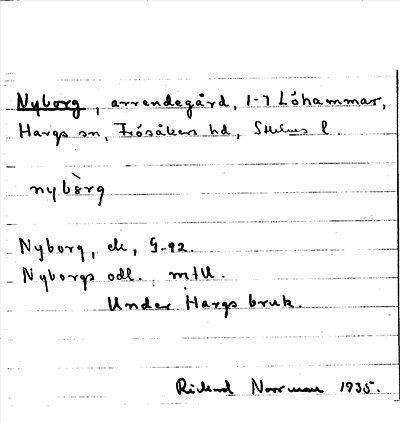 Nyborg, arrendegård, 1-7 Löhammar,
Hargs sn, Frösåkers hd, Sthlms l.
nybòrg
Nyborg, ek, G-92.
Nyborgs odl.
Under Hargs bruk.
Rickard Norrman 1935.